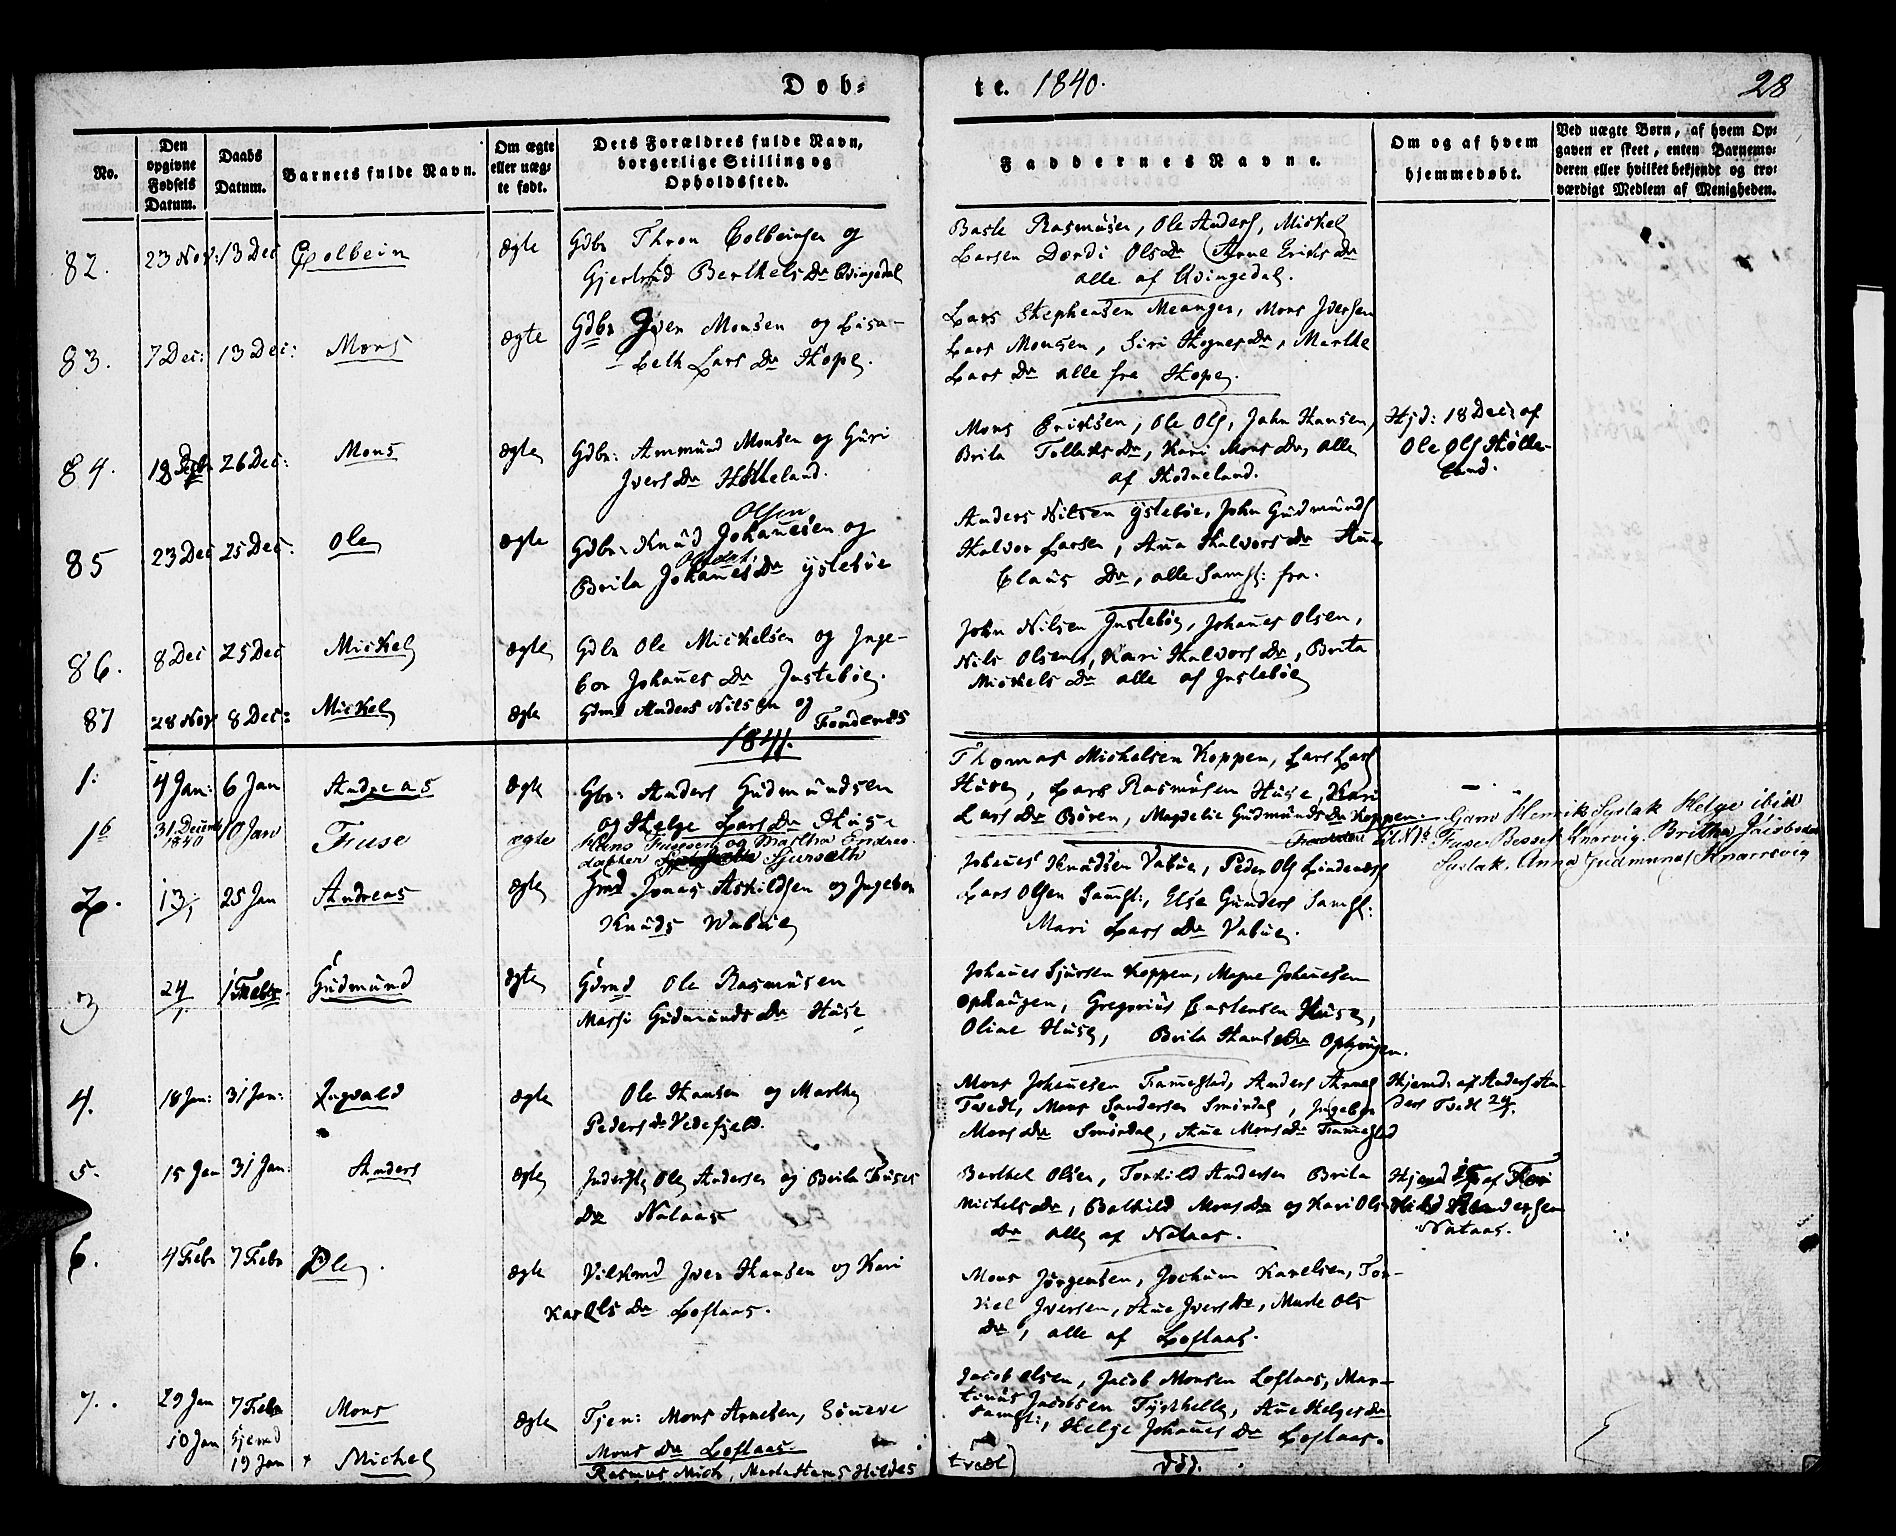 Døb-
te. 1840.
28
No.
Den opgivne Fødsels Datum.
Daabs Datum.
Barnets fulde Navn.
Om ægte eller uæg-
te født.
Dets Forældres fulde Navn,
borgerlige Stilling og
Opholdssted.
Faddernes Navne.
Om og af hvem
hjemmedøbt.
Ved uægte Børn, af hvem Op-
gaven er skeet, enten Barnemo-
deren eller hvilket bekjendt og tro-
værdigt Medlem af Menigheden.
82. 23 Nov: 13 Dec Colbein ægte Gdbr Thron Colbeinsen og
Gjertrud Berthels Dr Qvingedal
Rasmusen, Ole Anders, Mickel
Larsen Dordi Ols Dr Anne Eriks Dr
alle af Qvingedal.
83. 7 Dec: 13 Dec: Mons ægte Gdbr Iver Monsen og Lisa-
beth Lars Dr Hope.
Lars Stephensen Meanger, Mons Iversen
Lars Monsen, Siri Hognes Dr, Marthe
Lars Dr alle fra Hope.
84. 18 Decbr 26 Dec: Mons ægte Gdbr: Ammund Monsen og Guri
Ivers Dr
Mons Eriksen, Ole Ols, John Hansen,
Brita Dr, Kari Mons Dr, alle
af
Hjd: 18 Dec: af
Ole Ols Hølle-
land.
85 23 Dec 25 Dec: Ole ægte Gdbr: Knud Johannesen og
Olsen
Brita Johannes Dr Ystebøe
Anders Nilsen Ystebøe, John Gudmunds
Halvor Larsen, Anna Halvors Dr
Claus Dr, alle Saml: fra.
86. 8 Dec 25 Dec Mickel ægte Gdbr Ole Mickelsen og Inge-
bor Johannes Dr Justebøe.
John Nilsen Justebøe, Johannes Olsen,
Nils Olsen, Kari Halvors Dr, Brita
Mickels Dr alle af Justebøe
87 28 Nov 8 Dec: Mickel ægte Gdmd Anders Nilsen og
Fondenes
1841.
1: 4 Jan: 6 Jan Andreas Ægte Gbr: Anders Gudmundsen
og Helge Lars Dr Huse
Thomas Michelsen Koppen, Lars Lars
Huse, Lars Rasmusen Huse, Kari
Lars Dr Børen, Magdelie Gudmunds Dr Koppen.
1b 31 Decemb 1840 10 Jan Fuse ægte Hans Fusesen og Brithe Endres
datter Fjersæth
Henrik Syslak Helge ibid
Fuse Knarvig. Britha Jacobsdr
Syslak. Anna Gudmunds Knarrvig
2. 13/1 25 Jan Andreas Ægte Gmd Jonas Askildsen og Ingebor
Knuds Vabøe
Johannes Knudsen Vabøe, Peder Ols
Lars Olsen Samst:, Else Gunders Samst:
Mari Lars Dr Vabøe.
3 24/1 1 Febr. Gudmund Ægte Gdmd Ole Rasmusen
Gudmunds Dr Huse
Johannes Sjursen Koppen, Magne Johannesen
Ophaugen, Gregorius Huse,
Oline Huse, Brita Hans Dr Ophaugen.
4. 18 Jan: 31 Jan: Ingvald ægte Ole Hansen og Marthe
Peders dr Vedefjeld.
Mons Johannesen Trannestad, Anders Annes
Tvedt, Mons Sandersen Smørdal, Ingebor
Mons Dr Smørdal, Ane Mons Dr
Hjemd: af Anders An-
ders Tvedt 24/1.
5. 15 Jan 31 Jan: Anders ægte Inderst, Ole Andersen og Brita
Dr Nataas
Berthel Olsen, Torkild Andersen Brita
Michels Dr, Bothild Mons Dr og Kari Ols
Dr alle af Nataas.
Hjemd af Tor
Kild Andersen
Nataas.
6. 4 Febr 7 Febr Ole. ægte Iver Hansen og Kari
Karels Dr Loftaas.
Mons Jørgensen, Jochum Karelsen, Tor-
kel Iversen, Ane Ivers Dr, Marte Ols
Dr, alle af Loftaas.
7. 29 Jan 7 Febr Mons Ægte Tjen: Mons Arnesen, Synneve
Mons Dr Loftaas.
Jacob Olsen, Jacob Monsen Loftaas, Mar-
tinus Jacobsen, Ane Helges Dr
samst:, Helge Johannes Dr Loftaas.
10 Jan Hjemd 19 Jan Michel
Rasmus Mich, Marta Hans Hildes
tvedt)